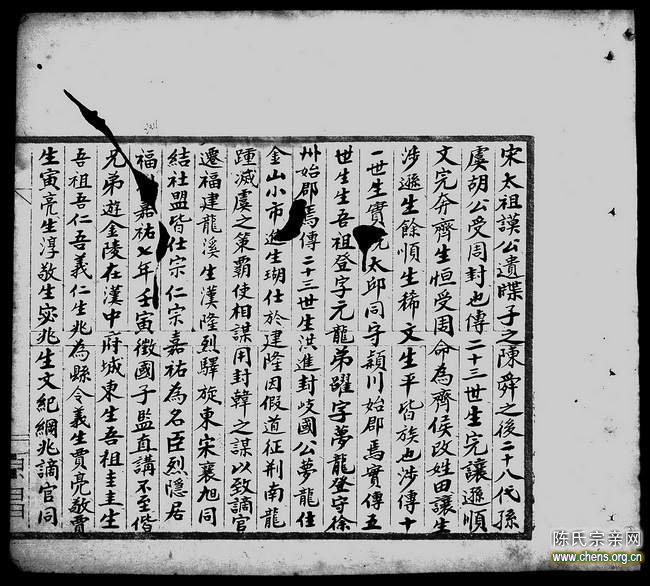 宋太祖謨公遺牒子之陳舜之後二十八代孫
虞胡公受周封也傳二十三世生完讓遜順
文完奔齊生恒受周命為齊侯改姓田讓生
涉遜生餘順生稀文生平皆族也涉傳十
一世生實太邱同守潁川始郡焉實傳五
世生生吾祖登字元龍弟躍字夢龍登守徐
州始郡焉傳二十三世生洪進封岐國公夢龍仕
金山小市進生瑚仕於建隆因假道征荆南龍
踵滅虞之策霸使相謀用封韓之謀以致謫官
遷福建龍溪生漢隆烈驛旋東宋襄旭同
結社盟皆仕宗仁宗嘉祐為名臣烈隱居
福嘉祐七年壬寅徵國子監直講不至偕
兄弟遊金陵在漢中府城東生吾祖圭圭生
吾祖吾仁吾義仁生兆為縣令義生賈亮敬賈
生寅亮生淳敬生宓兆生文紀綱兆謫官同
陈氏宗亲网
www.chens.org.cn